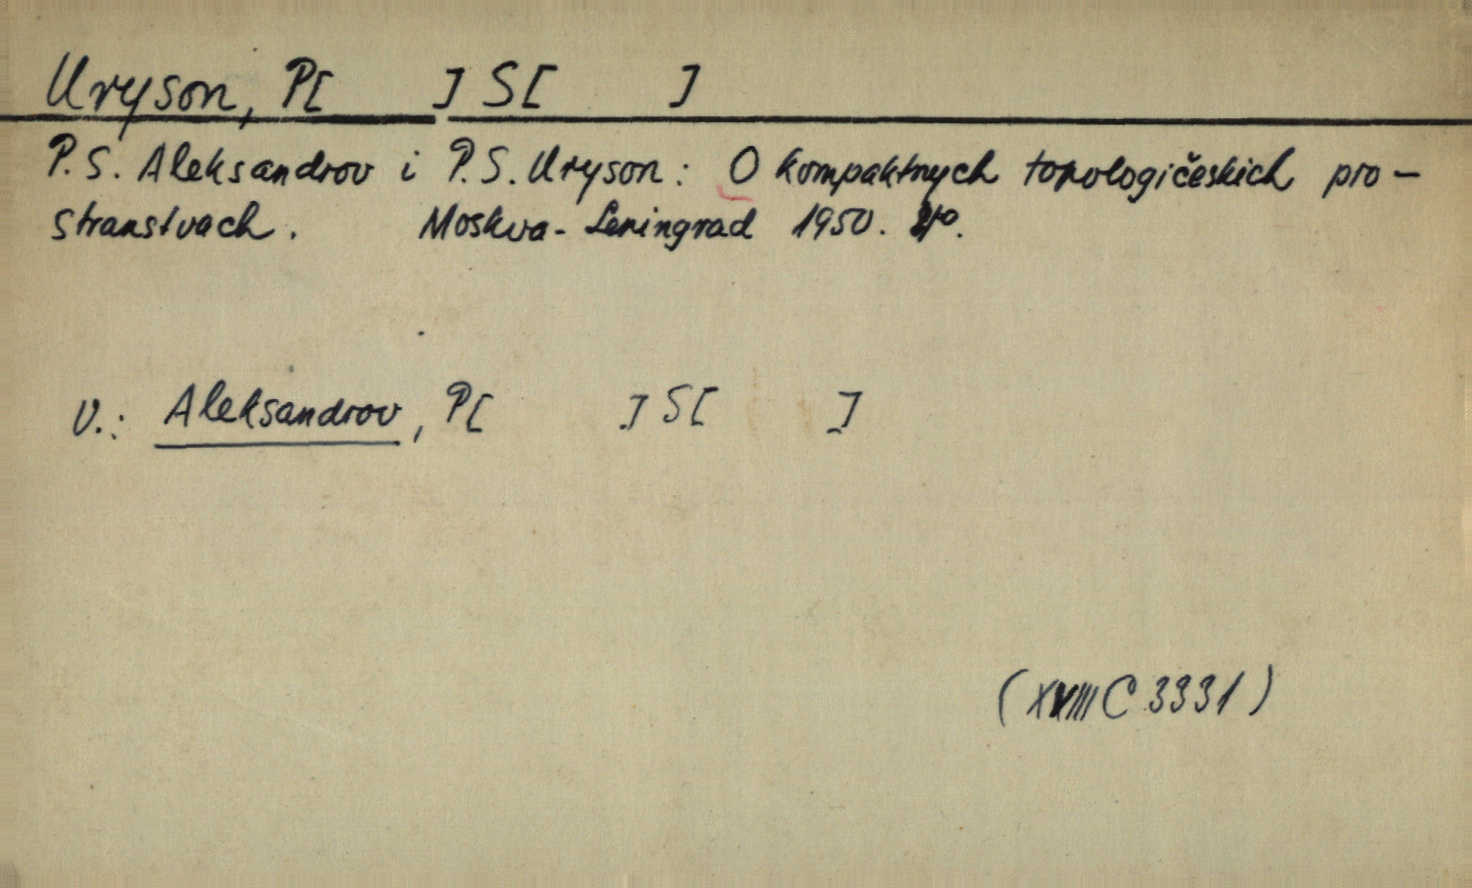 Uryson, P[ ] S[ ]
P. S. Aleksandrov i P. S. Uryson: O kompaktnych topologičeskich pro-
stranstvach. Moskva-Leningrad 1950.
v.: Aleksandrov, P[ ] S[ ]
(XVIII C 3331)